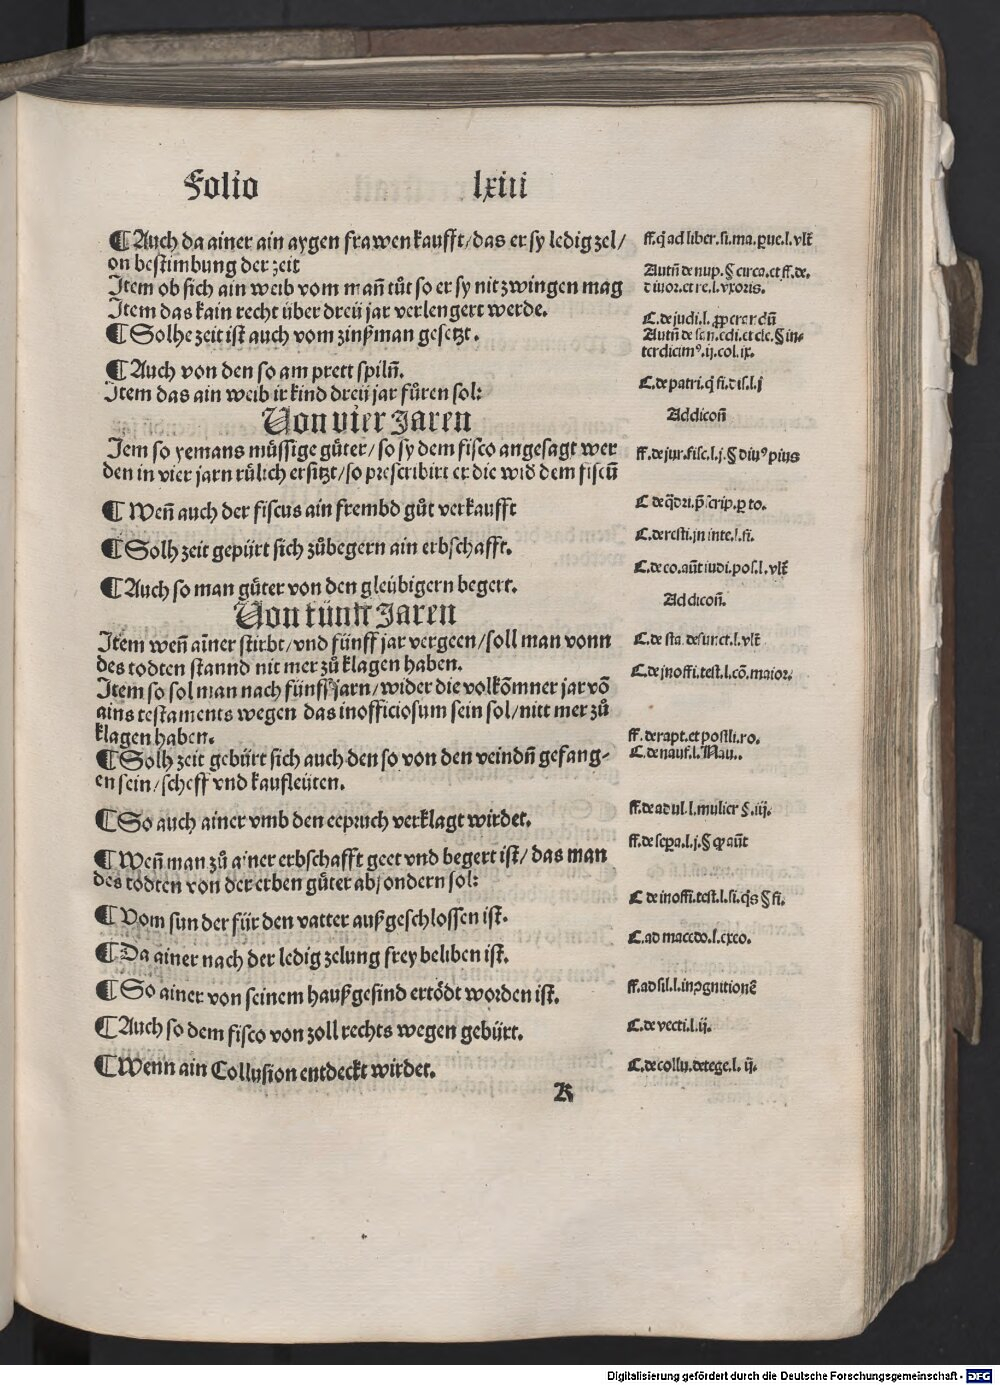 Folio lxiii
¶ Auch da ainer ain aygen frawen kaufft/das er sy ledig zel/
on bestimbung der zeit
Item ob sich ain weib vom mañ tůt so er sy nit zwingen mag
Item das kain recht über dreü jar verlengert werde.
¶ Solhe zeit ist auch vom zinßman gesetzt.
¶ Auch von den so am prett spiln̄.
Item das ain weib ir kind dreü jar fůren sol:
Von vier Jaren
Jem so yemans müssige güter/so sy dem fisco angesagt wer
den in vier jarn růlich ersitzt/so prescribirt er die wid dem fiscū
¶ Weñ auch der fiscus ain frembd gůt verkaufft
¶ Solh zeit gepürt sich zůbegern ain erbschafft.
¶ Auch so man güter von den gleübigern begert.
Von fünff Jaren
Item weñ aīner stirbt/vnd fünff jar vergeen/soll man vonn
des todten stannd nit mer zů klagen haben.
Item so sol man nach fünff jarn/wider die volkōmner jar vō
ains testaments wegen das inofficiosum sein sol/nitt mer zů
klagen haben.
¶ Solh zeit gebürt sich auch den so von den veindn̄ gefang-
en sein/scheff vnd kaufleüten.
¶ So auch ainer vmb den eepruch verklagt wirdet.
¶ Weñ man zů ainer erbschafft geet vnd begert ist/das man
des todten von der erben güter absondern sol:
¶ Vom sun der für den vatter außgeschlossen ist.
¶ Da ainer nach der ledig zelung frey beliben ist.
¶ So ainer von seinem haußgesind ertödt worden ist.
¶ Auch so dem fisco von zoll rechts wegen gebürt.
¶ Wenn ain Collusion entdeckt wirdet.
K
ff. q̄ ad liber. si. ma. ꝑue. l. vlt̄
Autn̄ de nup. § circa. et ff. de.
diuor. et re. l. vxoris.
C. de judi. l. ꝓperandū
Autn̄ de san. edi. et cle. § in-
terdicim⁹. ij. col. ix.
C. de patri. q̄ fi. dis. l. j
Addicoñ
ff. de jur. fisc. l. j. § diu⁹ pius
C de q̄dri. p̄scrip. ꝑ to.
C. de resti. jn inte. l. fi.
C. de co. aūt iudi. pos. l. vlt̄
Addicoñ.
C. de sta. defunct. l. vlt̄
C. de jnoffi. test. l. cō. maior.
ff. de rapt. et postli. ro.
C. de nauf. l. Nau..
ff. de adul. l. mulier §. iij.
ff. de seꝑa. l. j. § qp aūt
C de inoffi. test. l. si. q̄s § fi.
C. ad macedo. l. exco.
ff. ad sil. l. inꝯgnitionē
C. de vecti. l. ij.
C. de collu. detege. l. ij.
Digitalisierung gefördert durch die Deutsche Forschungsgemeinschaft - DFG